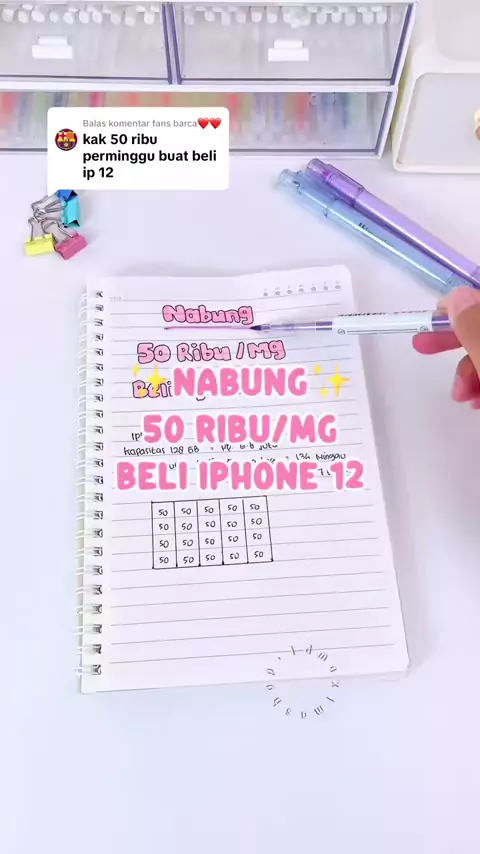 Balas komentar fans barca❤️❤️
kak 50 ribu
perminggu buat beli
ip 12
Nabung
50 Ribu/Mg
✨NABUNG✨
50 RIBU/MG
BELI IPHONE 12
Kapasitas 128 GB = Rp 6.8 Juta
= 134 Minggu
50 50 50 50 50
50 50 50 50 50
50 50 50 50 50
50 50 50 50 50